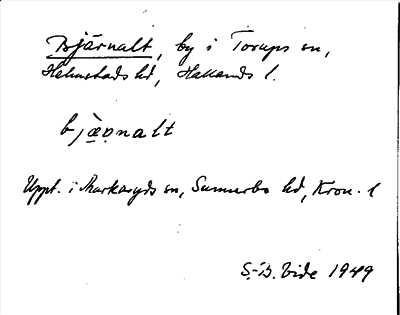 Bjärnalt, by i Torups sn,
Halmstads hd, Hallands l.
bjæ̣ṇalt
Uppt. i Markaryds sn, Sunnerbo hd, Kron. l
S.-B. Vide 1949